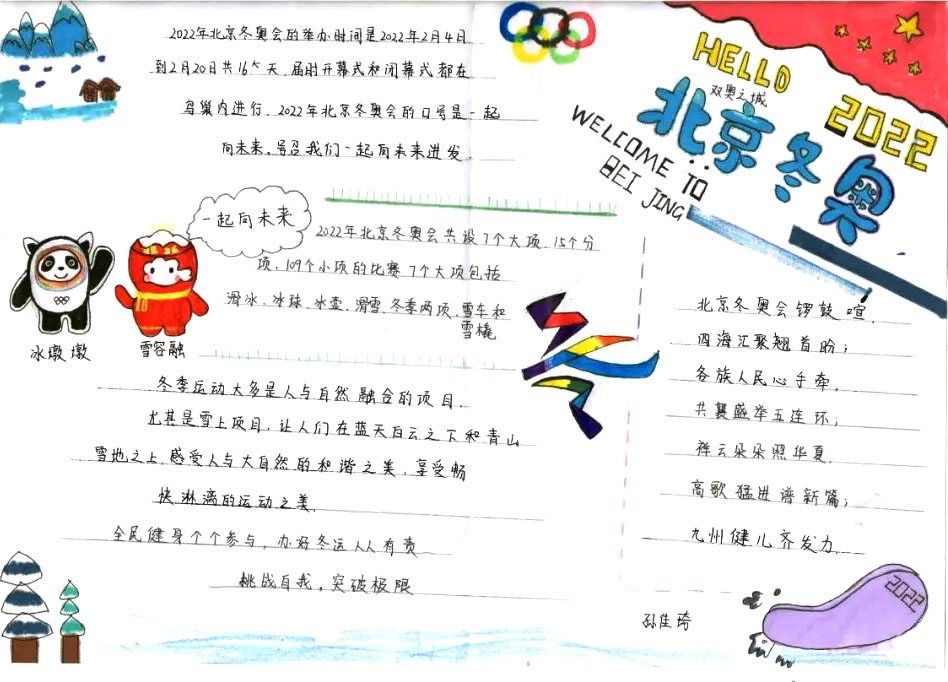 2022年北京冬奥会的举办时间是2022年2月4日
到2月20日共16个天,届时开幕式和闭幕式都在
鸟巢内进行.2022年北京冬奥会的口号是一起
向未来,号召我们一起向未来进发.
HELLO
2022
双奥之城
北京冬奥
WELCOME TO
BEI JING
一起向未来
2022年北京冬奥会共设7个大项.15个分
项,109个小项的比赛7个大项包括
滑冰.冰球.冰壶.滑雪.冬季两项.雪车和
雪橇
冰墩墩
雪容融
冬季运动大多是人与自然融合的项目.
尤其是雪上项目,让人们在蓝天白云之下和青山
雪地之上.感受人与大自然的和谐之美,享受畅
快淋漓的运动之美.
全民健身个个参与,办好冬运人人有责
挑战自我,突破极限
北京冬奥会锣鼓喧,
四海汇聚翘首盼;
各族人民心手牵,
共襄盛举五连环;
祥云朵朵照华夏.
高歌猛进谱新篇;
九州健儿齐发力.
孙佳琦
2022